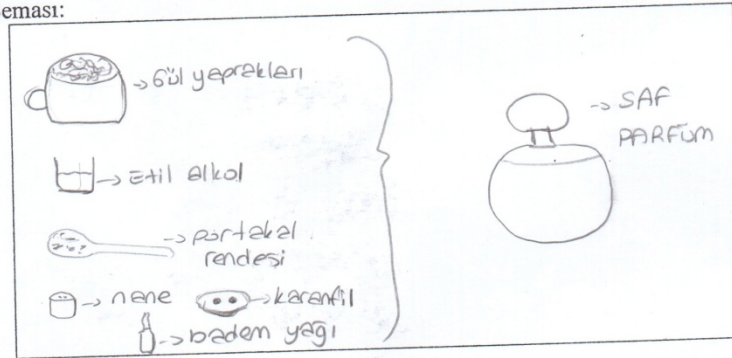 eması:
Gül yaprakları
Etil alkol
portakal
rendesi
nane
karanfil
badem yağı
SAF
PARFÜM